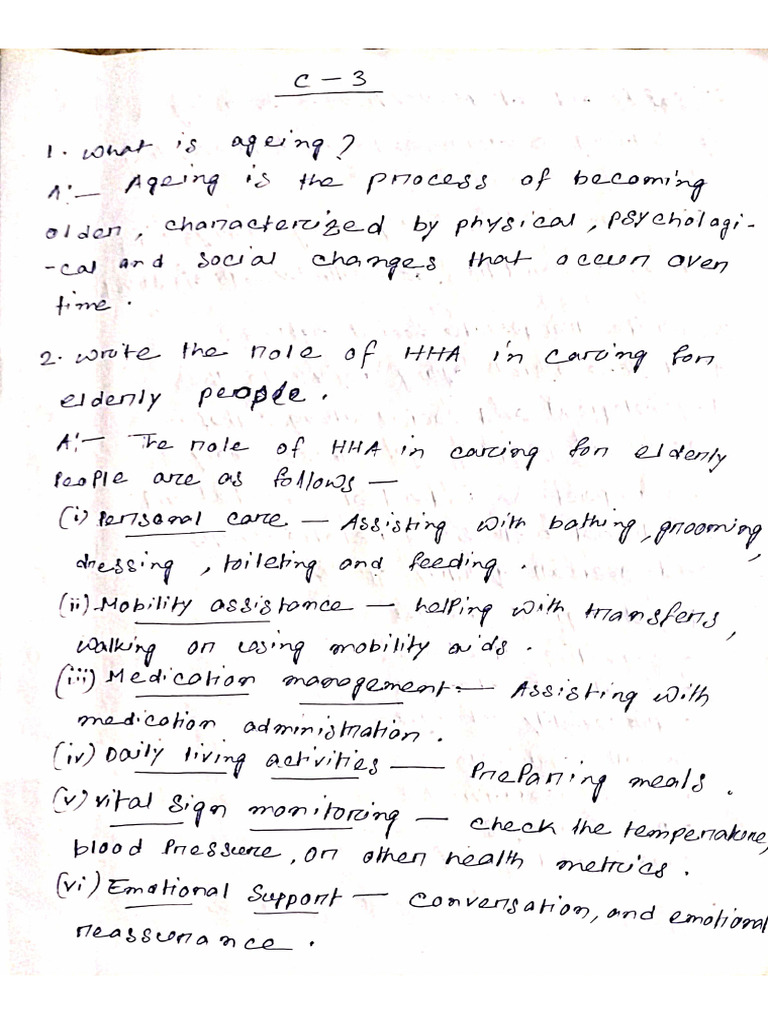 C - 3
1. What is ageing?
A:- Ageing is the process of becoming
older, characterized by physical, psychologi-
-cal and social changes that occur over
time.
2. Write the role of HHA in caring for
elderly people.
A:- The role of HHA in caring for elderly
people are as follows -
(i) Personal care - Assisting with bathing, grooming,
dressing, toileting and feeding.
(ii) Mobility assistance - helping with transfers,
walking or using mobility aids.
(iii) Medication management - Assisting with
medication administration.
(iv) Daily living activities - Preparing meals.
(v) Vital sign monitoring - check the temperature,
blood pressure, or other health metrics.
(vi) Emotional support - conversation, and emotional
reassurance.